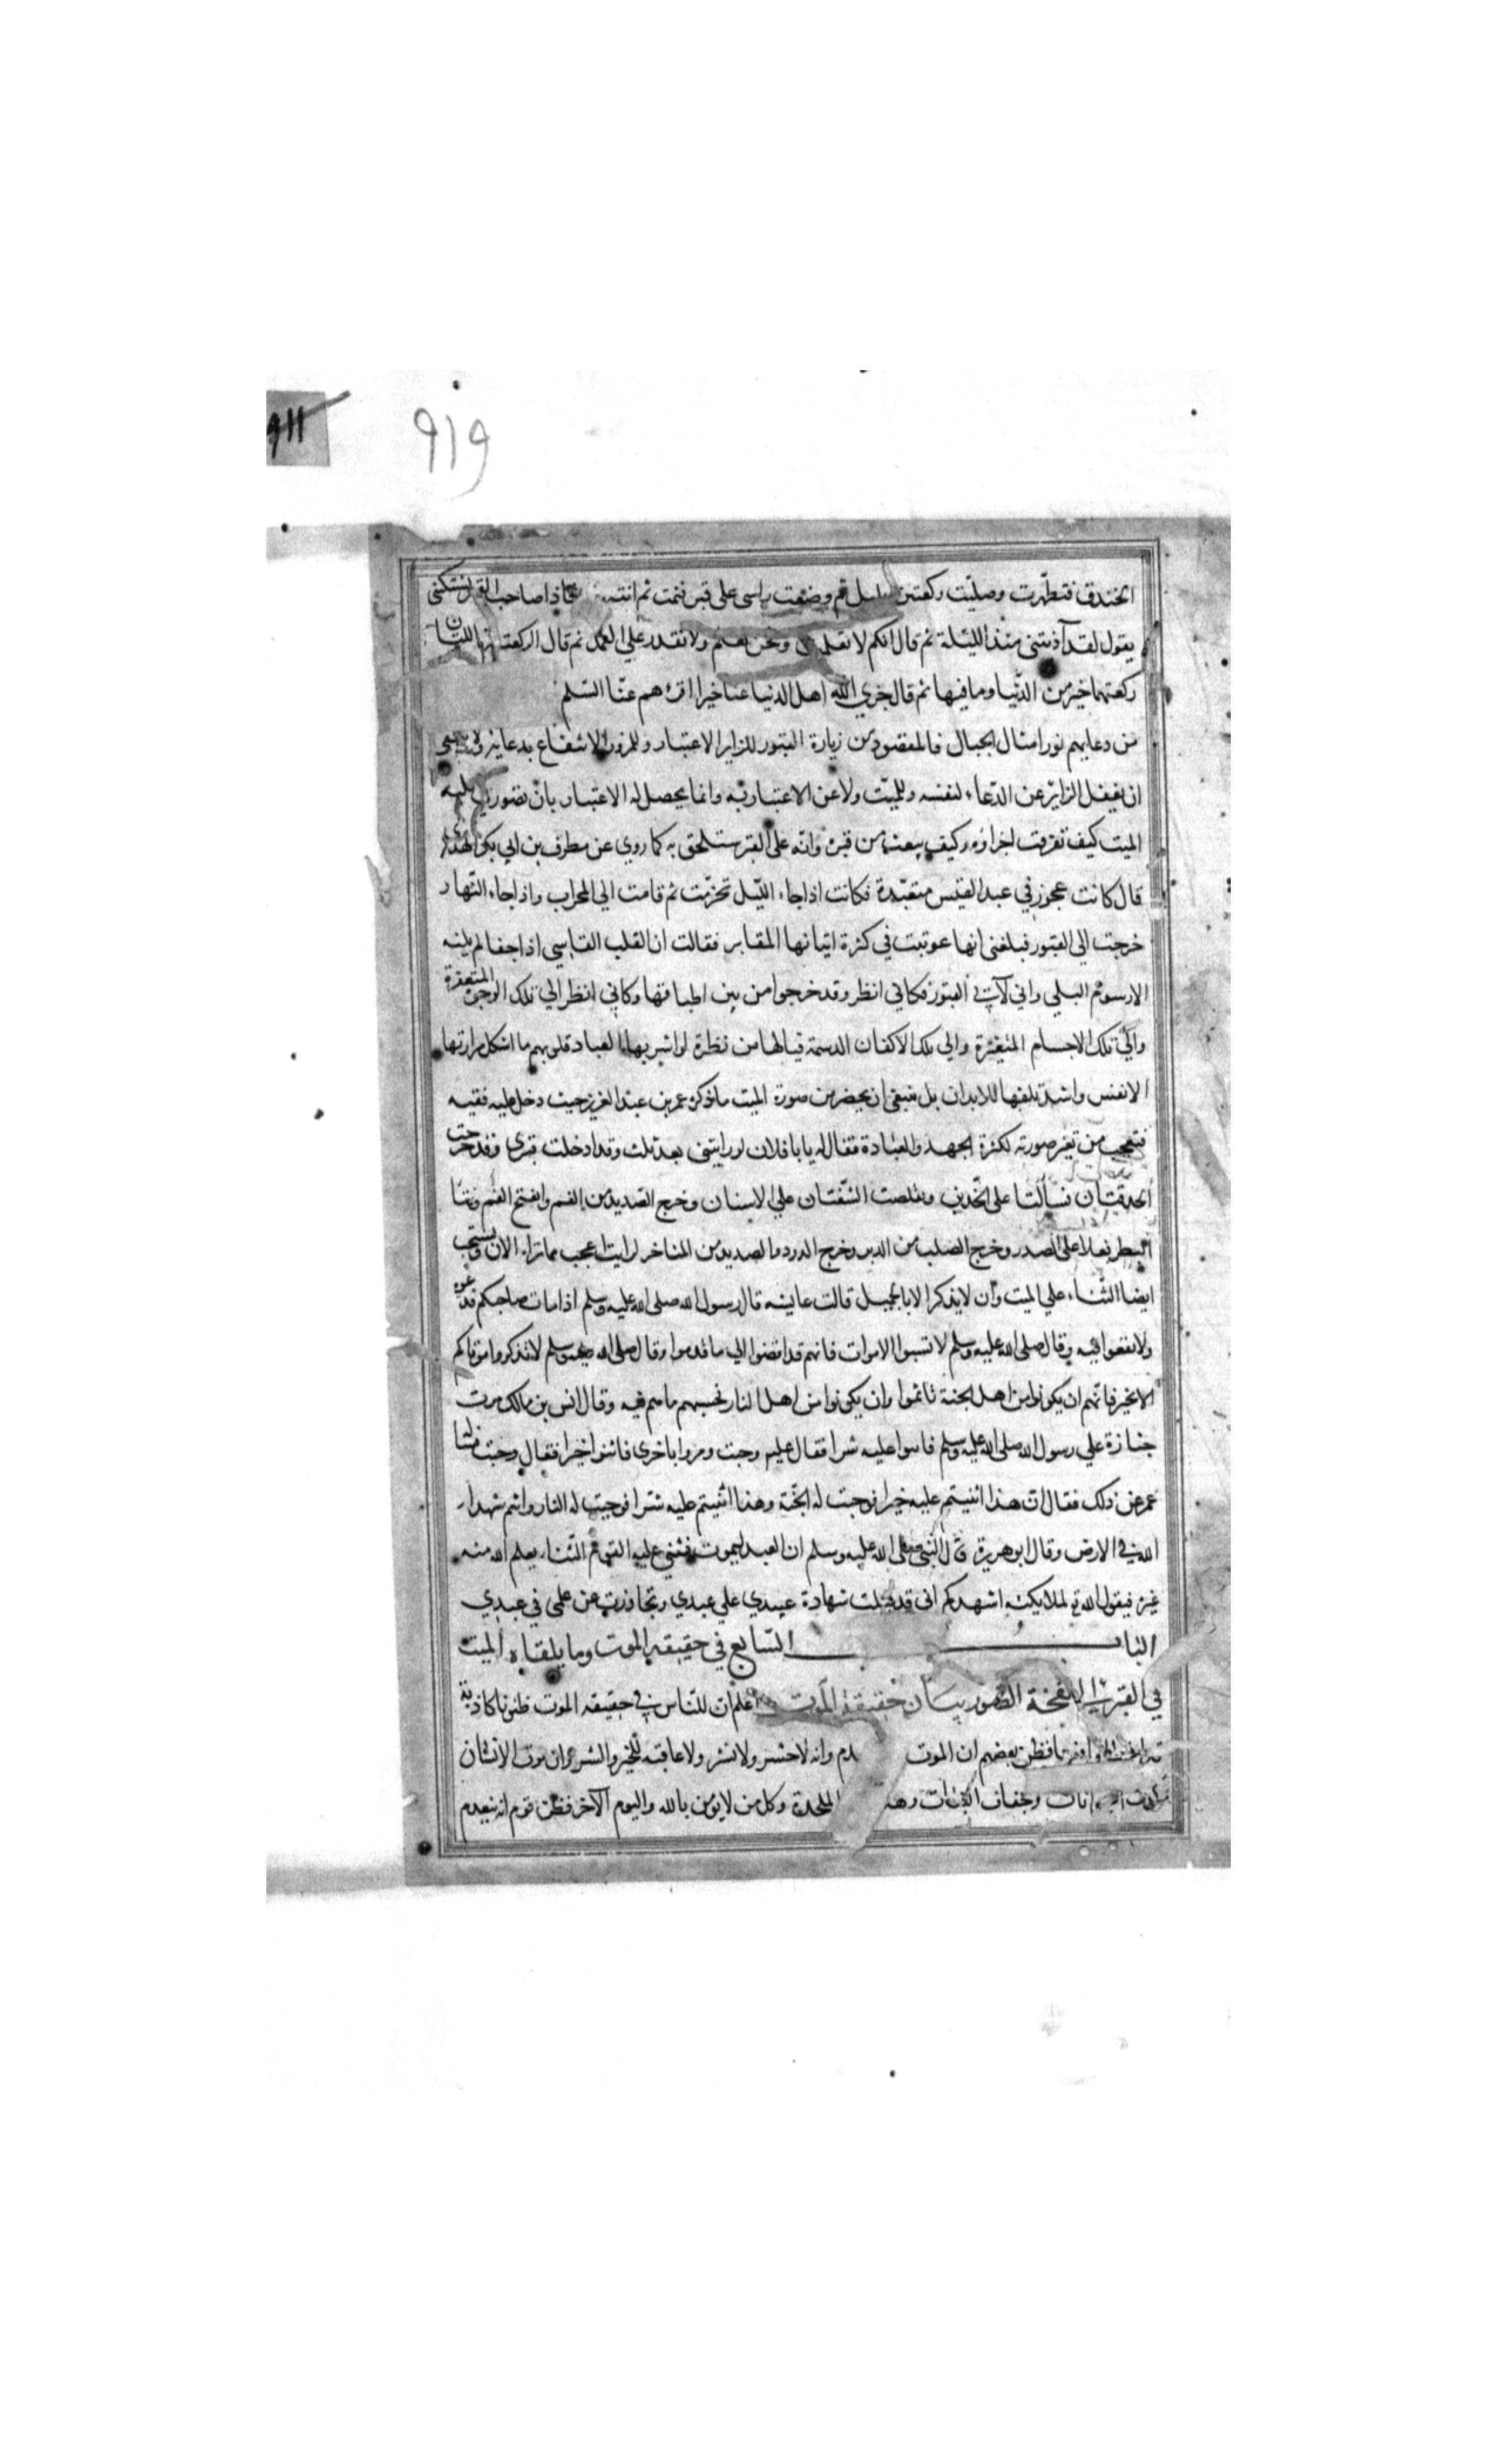 ٩١١
٩١٩
الخندق فتطهرت وصليت ركعتين ثم وضعت راسى على قبر فنمت ثم انتبهت فاذا صاحب القبر يشتكنى
يقول لقد آذيتنى منذ الليلة ثم قال انكم لا تعلمون ونحن نعلم ولا نقدر على العمل ثم قال الركعتان اللتان
ركعتهما خير من الدنيا وما فيها ثم قال جزي الله اهل الدنيا عنا خيرا اقرءهم عنا السلم
من دعايهم نور امثال الجبال فالمقصود من زيارة القبور للزاير الاعتبار وللمزور الاشفاع بدعايه ولا ينبغي
ان يغفل الزاير عن الدعاء لنفسه وللميت ولا عن الاعتبار به وانما يحصل له الاعتبار بان يتصور في قلبه
الميت كيف تفرقت اجزاؤه وكيف يبعث من قبره وانه على القرب ستلحق به كما روي عن مطرف بن ابي بكر الهذلي
قال كانت عجوز في عبد القيس متعبدة فكانت اذا جاء الليل تحزمت ثم قامت الي المحراب واذا جاء النهار
خرجت الي القبور فبلغنى انها عوتبت في كثرة اتيانها المقابر فقالت ان القلب القاسي اذا جفا لم يلينه
الا رسوم البلي واني لآتي القبور فكاني انظر وقد خرجوا من بين اطباقها وكاني انظر الي تلك الوجوه المتعفرة
والي تلك الاجسام المتغيرة والي تلك الاكفان الدسمة فيالها من نظرة لو اشربها العباد قلوبهم ما اشكل مرارتها
الانفس واشد تلفها للابدان بل ينبغى ان يحضر من صورة الميت ما ذكره عمر بن عبد العزيز حيث دخل عليه فقيه
فتعجب من تغير صورته لكثرة الجهد والعبادة فقال له يا با فلان لو رايتنى بعد ثلث وقد ادخلت قبرى وقد خرجت
الحدقتان فسالتا على الخدين وتقلصت الشفتان علي الاسنان وخرج الصديد من الفم وانفتح الفم ونتا
البطن فعلا على الصدر وخرج الصلب من الدبر وخرج الدود والصديد من المناخر لرايت اعجب مما تراه الان ويستحب
ايضا الثناء علي الميت وان لا يذكر الا بالجميل قالت عايشه قال رسول الله صلى الله عليه وسلم اذا مات صاحبكم فدعوه
ولا تقعوا فيه وقال صلى الله عليه وسلم لا تسبوا الاموات فانهم قد افضوا الي ما قدموا وقال صلى الله عليه وسلم لا تذكروا موتاكم
الا بخير فانهم ان يكونوا من اهل الجنة تاثموا وان يكونوا من اهل النار فحسبهم ما هم فيه وقال انس بن مالك مرت
جنازة علي رسول الله صلى الله عليه وسلم فاثنوا عليه شرا فقال عليه وجبت ومروا باخرى فاثنوا خيرا فقال وجبت
عمر عن ذلك فقال ان هذا اثنيتم عليه خيرا فوجبت له الجنة وهذا اثنيتم عليه شرا فوجبت له النار وانتم شهداء
الله في الارض وقال ابو هريرة قال النبي صلى الله عليه وسلم ان العبد ليموت فيثني عليه القوم الثناء يعلم الله منه
غيره فيقول الله تع لملايكته اشهدكم انى قد قبلت شهادة عبيدي علي عبدي وتجاوزت عن علمى في عبدي
الباب السابع في حقيقه الموت وما يلقاه الميت
في القبر الي نفخة الصور بيان حقيقة الموت اعلم ان للناس في حقيقه الموت ظنونا كاذبة
فظن بعضهم ان الموت وانه لا حشر ولا نشر ولا عاقبه للخير والشر وان موت الانسان
وجفاف النبات الملحدة وكل من لا يؤمن بالله واليوم الآخر فظن قوم انه ينعدم